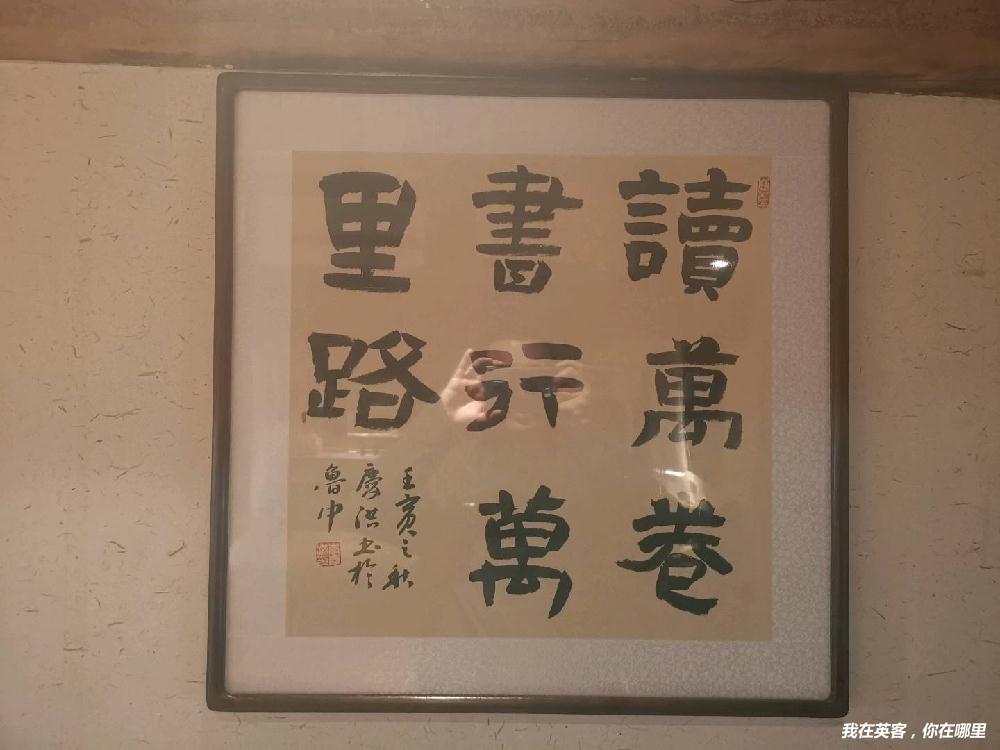 讀萬卷
書行萬
里路
壬寅之秋
慶洪书於
魯中
我在英客，你在哪里